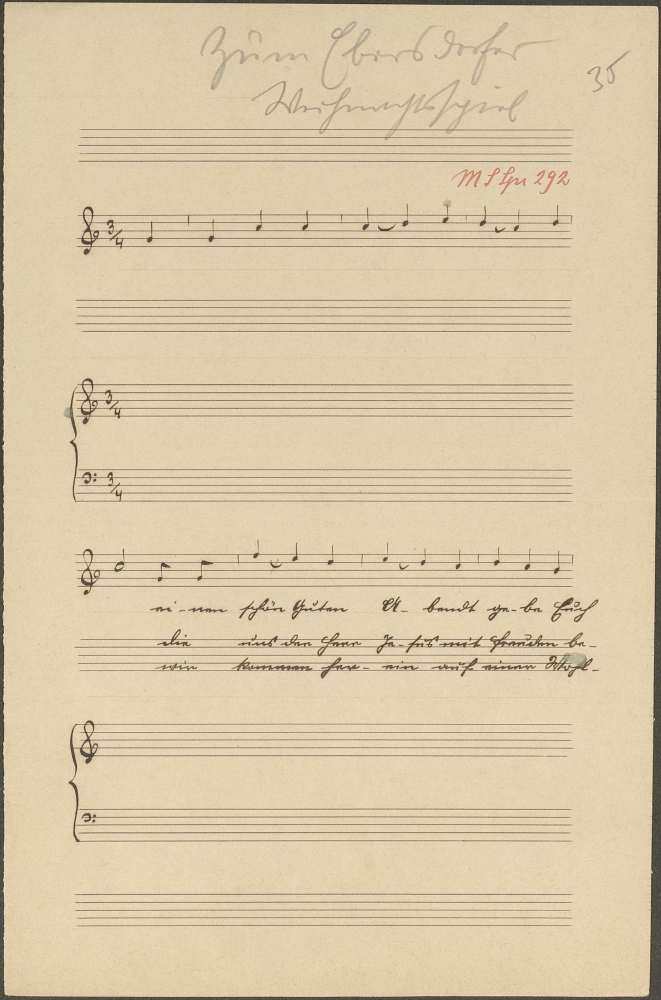 Zum Ebersdorfer
Weihnachtsspiel
35
3/4
3/4
3/4
ei-nen schön Guten A-bendt ge-be Euch
die uns der Herr Je-sus mit freuden be-
wir kommen her-ein auf einer Wohl-